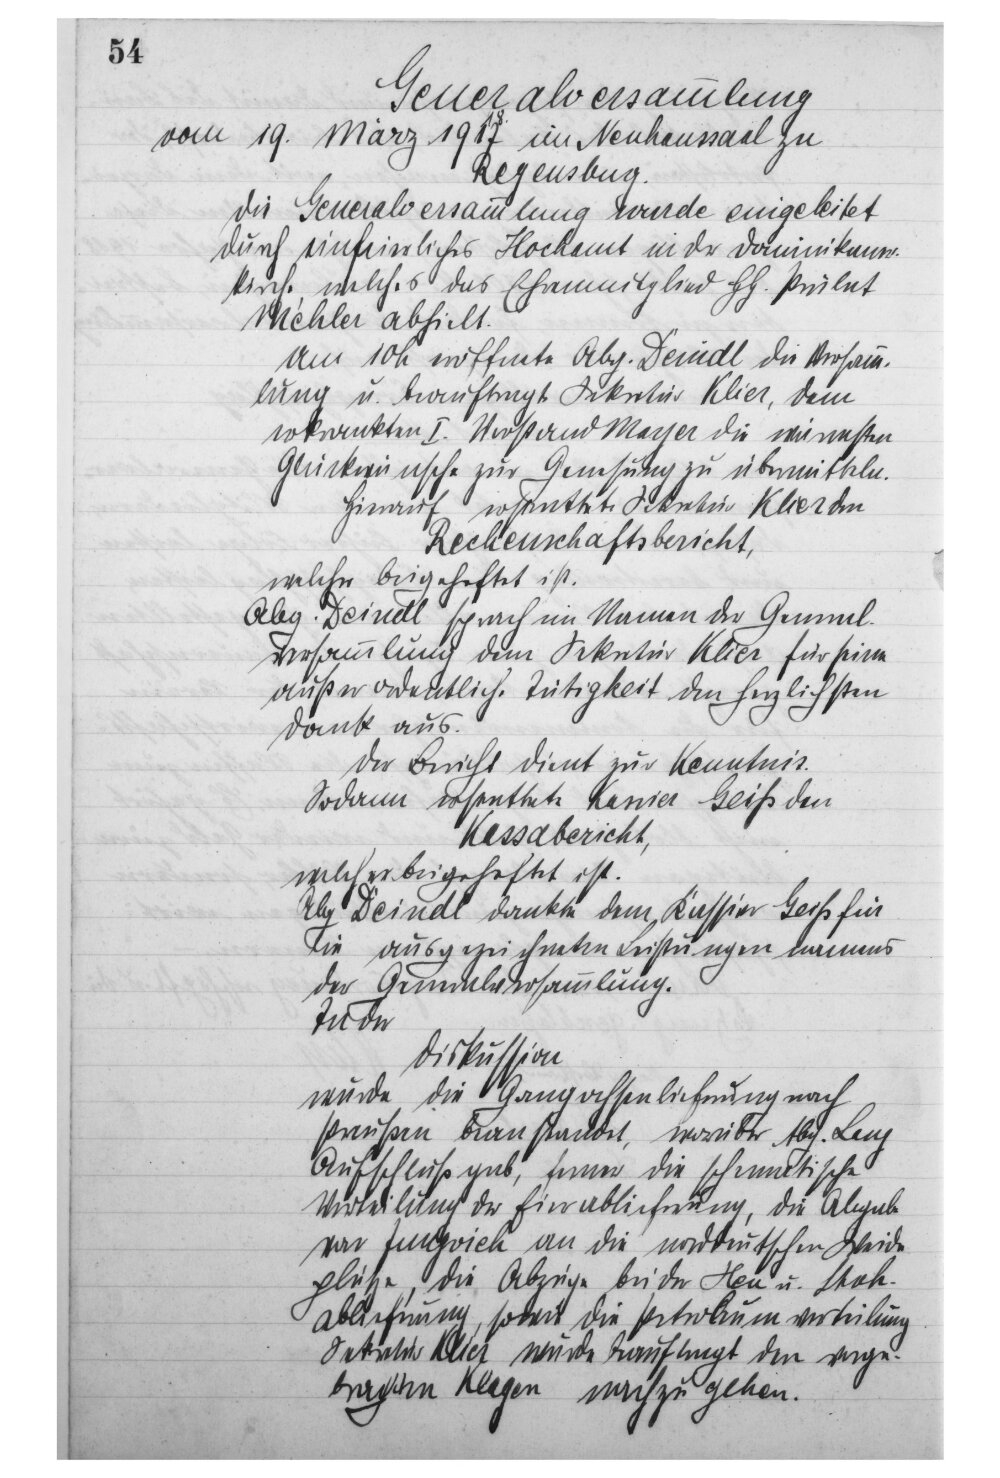 54
Generalversam̅lung
vom 19. März 1917 18. im Neuhaussaal zu
Regensburg.
Die Generalversam̅lung wurde eingeleitet
durch ein feierliches Hochamt in der Dominikaner-
kirche welches das Ehrenmitglied HH. Prälat
Mehler abhielt.
Um 10h eröffnete Abg. Deindl die Versam̅-
lung u. beauftragt Sekretär Klier, dem
erkrankten I. Vorstand Mayer die wärmsten
Glückwünsche zur Genesung zu übermitteln.
Hierauf erstattete Sekretär Klier den
Rechenschaftsbericht,
welcher beigeheftet ist.
Abg. Deindl sprach im Namen der General-
versam̅lung dem Sekretär Klier für seine
außerordentliche Tätigkeit den herzlichsten
Dank aus.
Der Bericht dient zur Kenntnis.
Sodann erstattete Kassier Geiß den
Kassabericht,
welcher beigeheftet ist.
Abg Deindl dankte dem Kassier Geiß für
die ausgezeichneten Leistungen namens
der Generalversam̅lung.
In der
Diskussion
wurde die Gangochsenlieferung nach
Preußen beanstandet, worüber Abg. Lang
Aufschluß gab, ferner die schematische
Verteilung der Eierablieferung, die Abgabe
von Jungvieh an die norddeutschen Weide
plätze, die Abzüge bei der Heu u. Stroh-
ablieferung, sowie die Petroleum verteilung
Sekretär Klier wurde beauftragt den vorge-
brachten Klagen nachzugehen.